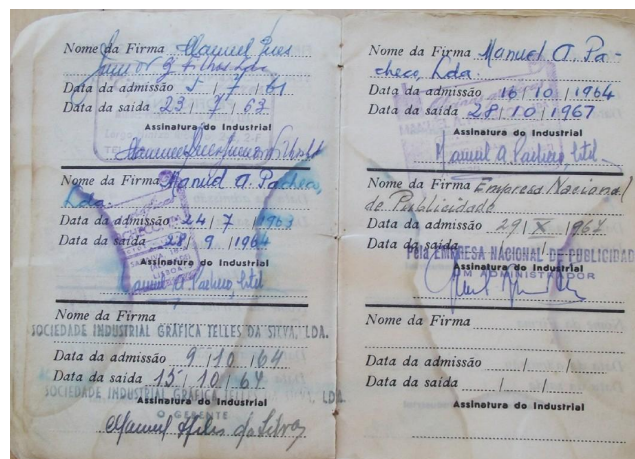 Nome da Firma Manuel
Junior & Filhos Lda
Data da admissão 5 / 7 / 61
Data da saida 23 / 7 / 63
Assinatura do Industrial
Nome da Firma Manuel A. Pacheco,
Lda.
Data da admissão 24 / 7 / 1963
Data da saida 28 / 9 / 1964
LISBOA
Assinatura do Industrial
Manuel A. Pacheco, Ltd.
Nome da Firma
SOCIEDADE INDUSTRIAL GRÁFICA TELLES DA SILVA, LDA.
Data da admissão 9 / 10 / 64
Data da saida 15 / 10 / 64
SOCIEDADE INDUSTRIAL GRÁFICA TELLES DA SILVA, LDA.
Assinatura do Industrial
O GERENTE
Manuel Telles da Silva
Nome da Firma Manuel A. Pa-
checo, Lda.
Data da admissão 16 / 10 / 1964
Data da saida 28 / 10 / 1967
Assinatura do Industrial
Manuel A. Pacheco, Ltd.
Nome da Firma Empresa Nacional
de Publicidade
Data da admissão 29 / X / 1967
Data da saida / /
Pela EMPRESA NACIONAL DE PUBLICIDADE
Assinatura do Industrial
UM ADMINISTRADOR
Nome da Firma
Data da admissão / /
Data da saida / /
Assinatura do Industrial